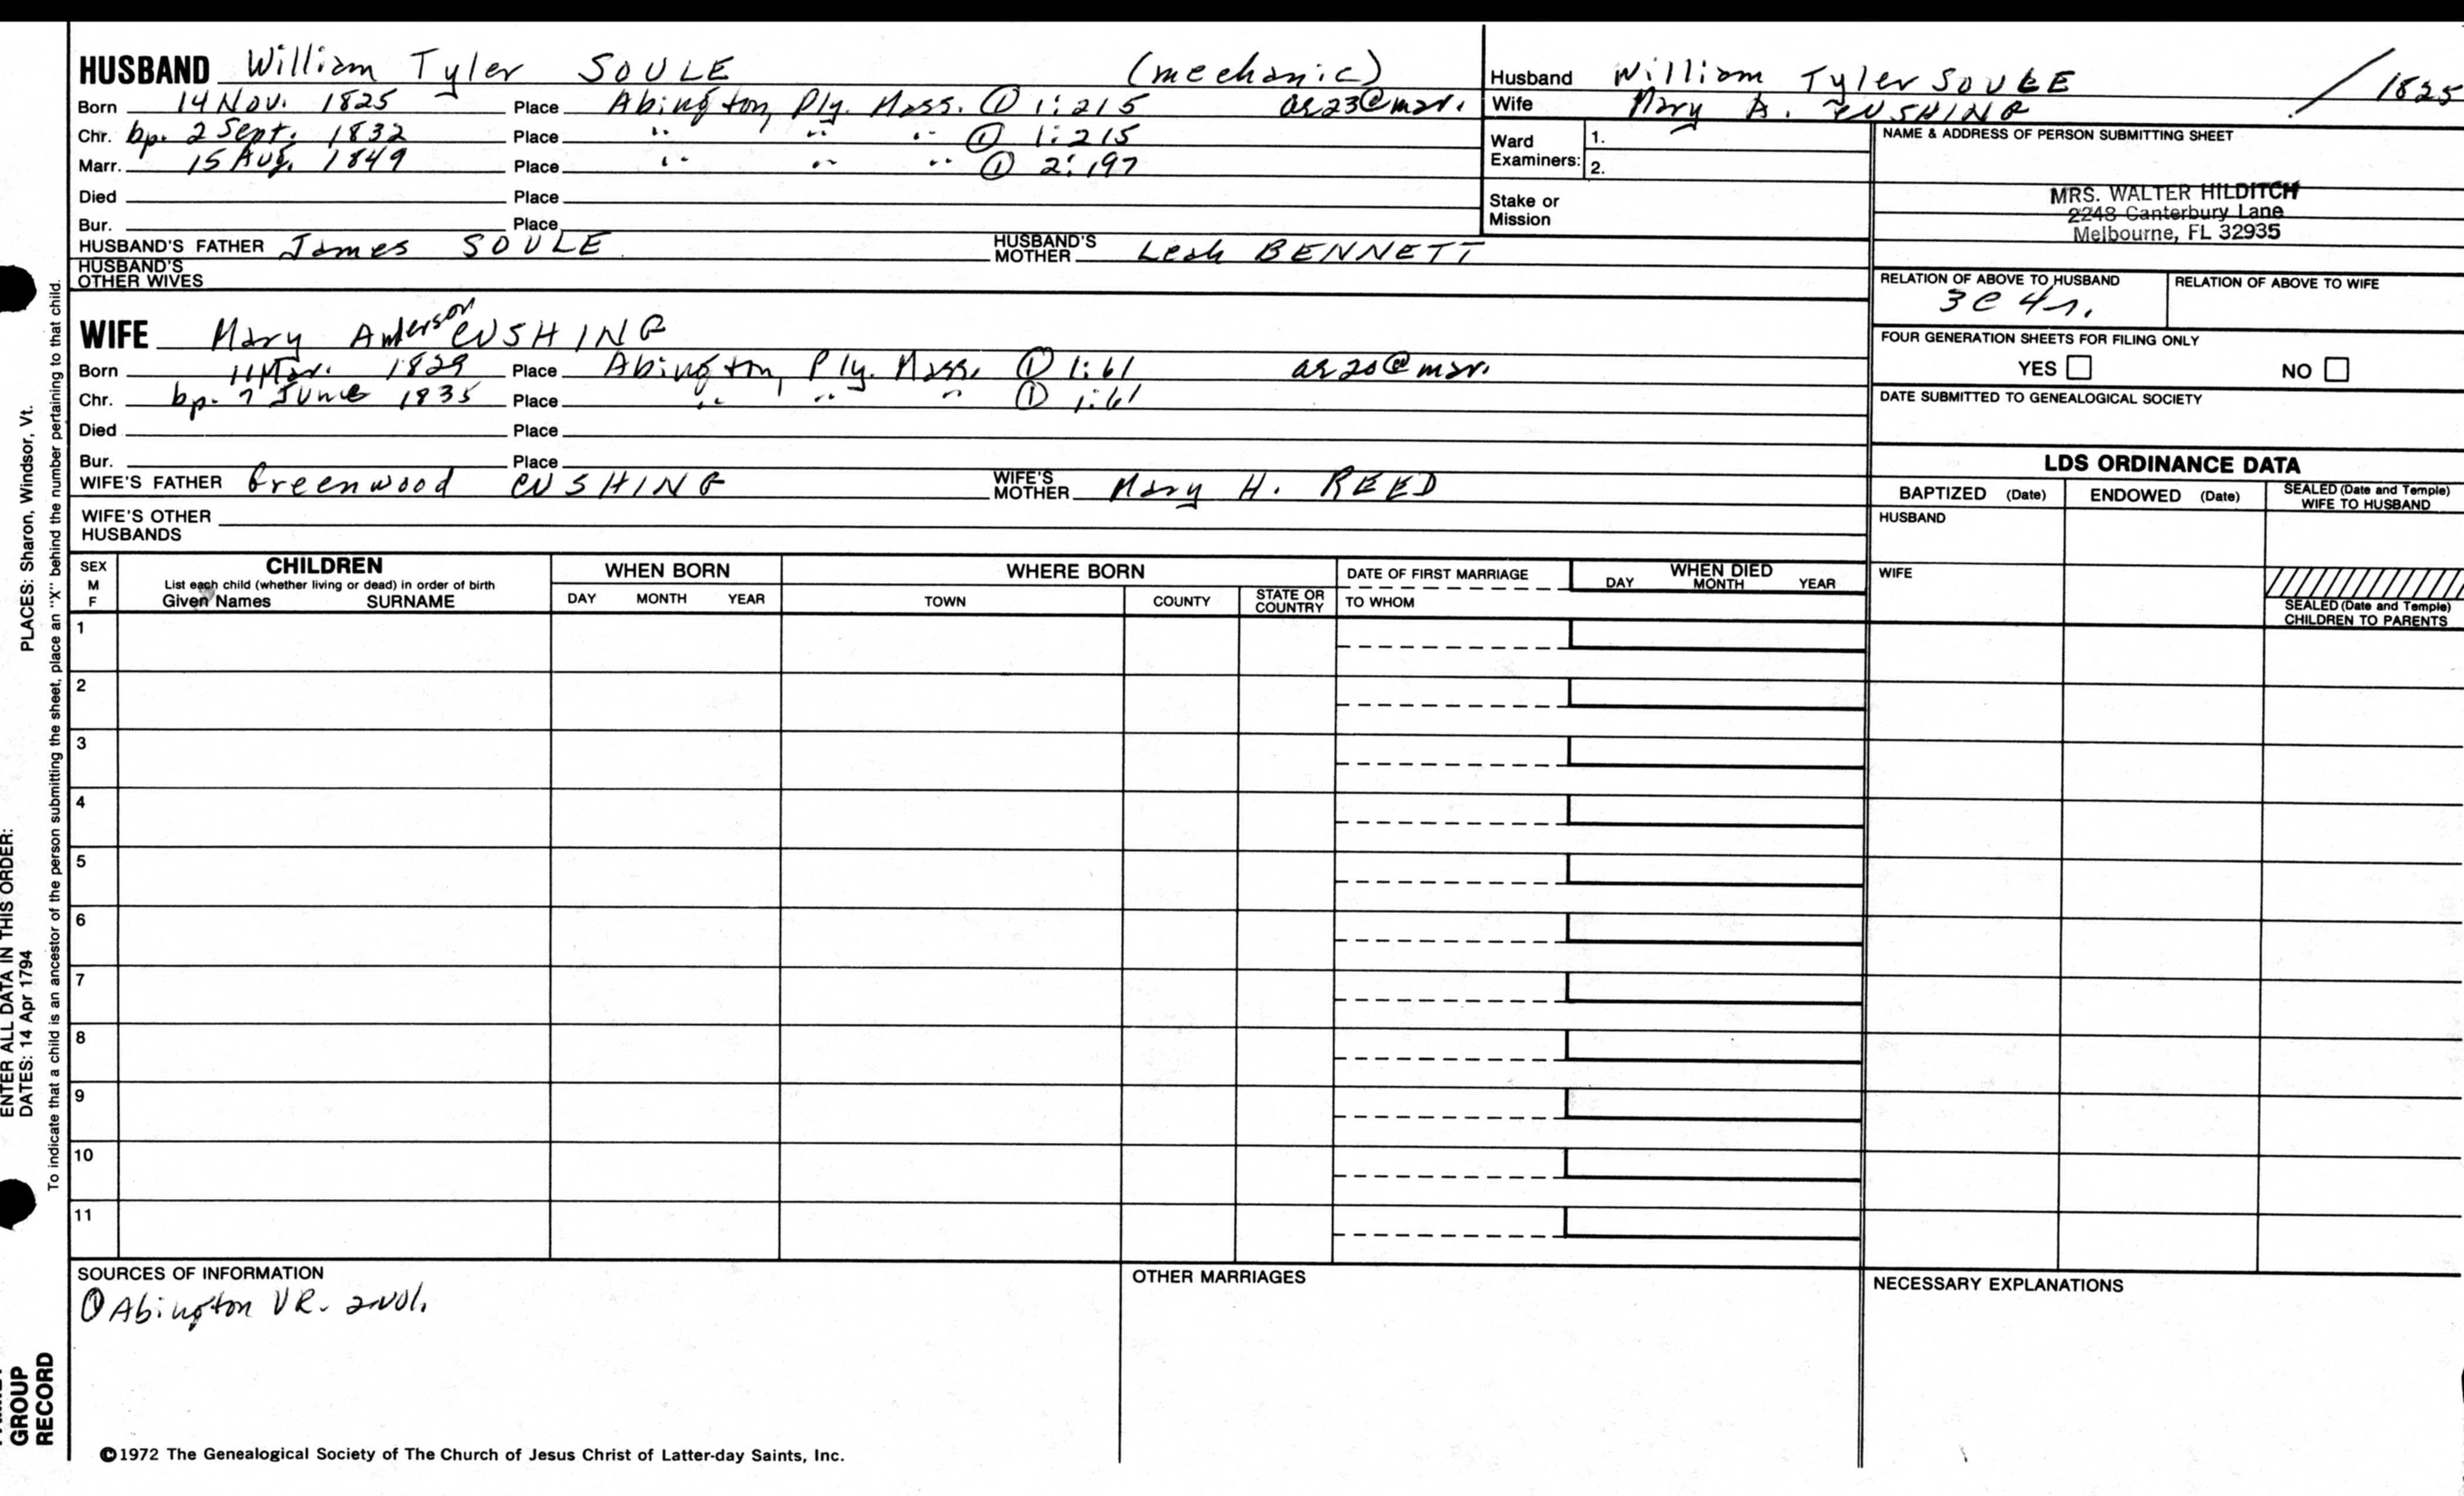 HUSBAND William Tyler SOULE (mechanic)
Born 14 Nov. 1825 Place Abington, Ply. Mass. ① 1:215 ae 23@mar.
Chr. bp. 2 Sept. 1832 Place " " " ① 1:215
Marr. 15 Aug. 1849 Place " " " ① 2:197
Died Place
Bur. Place
HUSBAND'S FATHER James SOULE HUSBAND'S MOTHER Leah BENNETT
HUSBAND'S OTHER WIVES
WIFE Mary Anderson CUSHING
Born 11 Mar. 1829 Place Abington, Ply. Mass. ① 1:61 ae 20@mar.
Chr. bp. 7 June 1835 Place " " " ① 1:61
Died Place
Bur. Place
WIFE'S FATHER Greenwood CUSHING WIFE'S MOTHER Mary H. REED
WIFE'S OTHER HUSBANDS
Husband William Tyler SOULE / 1825
Wife Mary A. CUSHING
Ward Examiners: 1.
2.
Stake or Mission
NAME & ADDRESS OF PERSON SUBMITTING SHEET
MRS. WALTER HILDITCH
2248 Canterbury Lane
Melbourne, FL 32935
RELATION OF ABOVE TO HUSBAND RELATION OF ABOVE TO WIFE
3C 4r.
FOUR GENERATION SHEETS FOR FILING ONLY
YES NO
DATE SUBMITTED TO GENEALOGICAL SOCIETY
LDS ORDINANCE DATA
BAPTIZED (Date) ENDOWED (Date) SEALED (Date and Temple) WIFE TO HUSBAND
HUSBAND
WIFE
SEALED (Date and Temple) CHILDREN TO PARENTS
SEX M F
CHILDREN
List each child (whether living or dead) in order of birth
Given Names SURNAME
WHEN BORN
DAY MONTH YEAR
WHERE BORN
TOWN COUNTY STATE OR COUNTRY
DATE OF FIRST MARRIAGE
TO WHOM
WHEN DIED
DAY MONTH YEAR
1
2
3
4
5
6
7
8
9
10
11
SOURCES OF INFORMATION
① Abington VR. 2 vol.
OTHER MARRIAGES
NECESSARY EXPLANATIONS
©1972 The Genealogical Society of The Church of Jesus Christ of Latter-day Saints, Inc.
ENTER ALL DATA IN THIS ORDER:
DATES: 14 Apr 1794 PLACES: Sharon, Windsor, Vt.
To indicate that a child is an ancestor of the person submitting the sheet, place an "X" behind the number pertaining to that child.
GROUP
RECORD